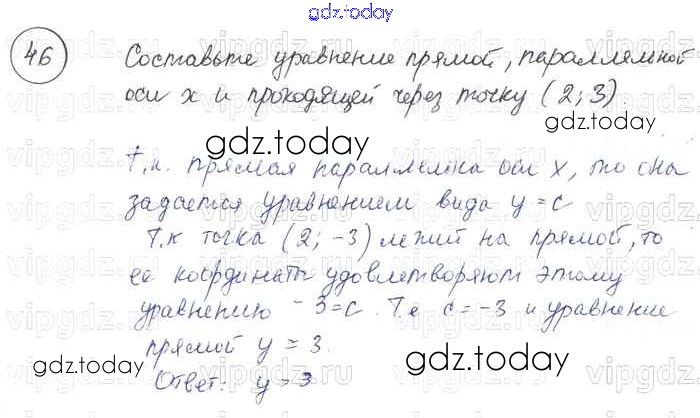 gdz.today
46
Составьте уравнение прямой, параллельной
оси x и проходящей через точку (2; 3)
gdz.today
gdz.today
Т.к. прямая параллельна оси x, то она
задается уравнением вида y = c
Т.к точка (2; -3) лежит на прямой, то
ее координаты удовлетворяют этому
уравнению -3=c. Т.е c=-3 и уравнение
прямой y = 3.
gdz.today
gdz.today
Ответ: y = 3